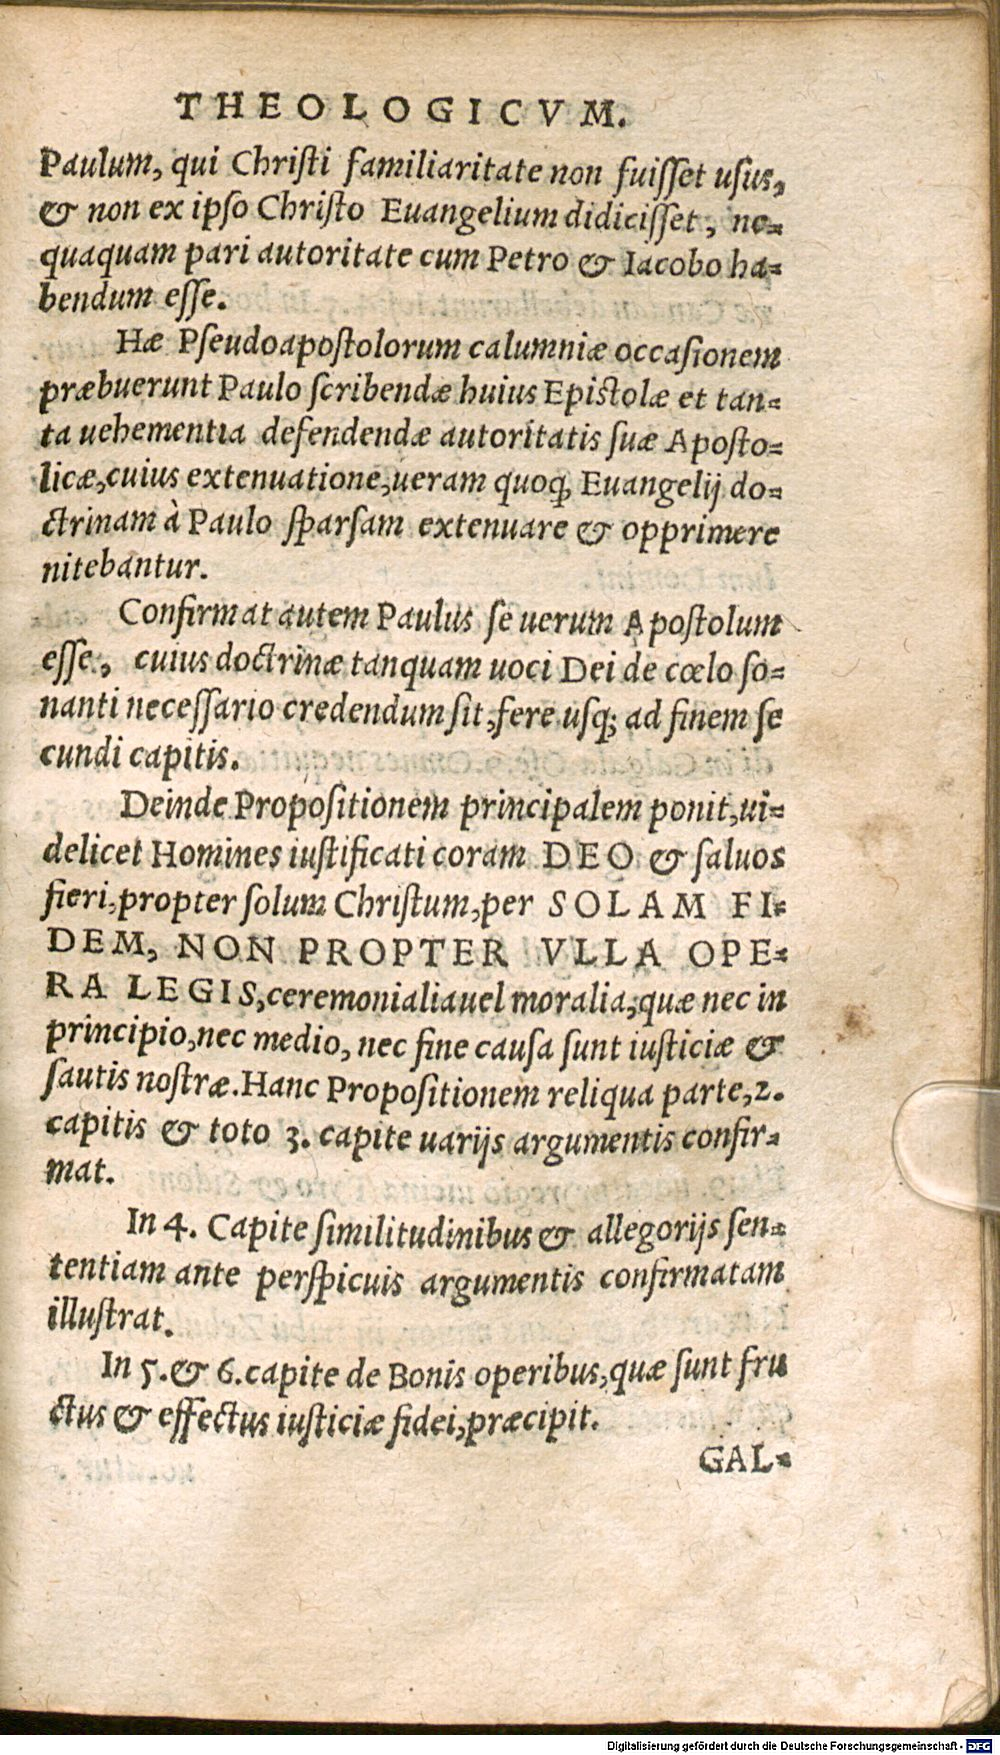 THEOLOGICVM.
Paulum, qui Christi familiaritate non fuisset usus,
& non ex ipso Christo Euangelium didicisset, ne=
quaquam pari autoritate cum Petro & Iacobo ha=
bendum esse.
Hæ Pseudoapostolorum calumniæ occasionem
præbuerunt Paulo scribendæ huius Epistolæ et tan=
ta uehementia defendendæ autoritatis suæ Aposto=
licæ,cuius extenuatione,ueram quoq; Euangelij do=
ctrinam à Paulo sparsam extenuare & opprimere
nitebantur.
Confirmat autem Paulus se uerum Apostolum
esse, cuius doctrinæ tanquam uoci Dei de cœlo so=
nanti necessario credendum sit,fere usq; ad finem se
cundi capitis.
Deinde Propositionem principalem ponit,ui=
delicet Homines iustificati coram DEO & saluos
fieri,propter solum Christum,per SOLAM FI=
DEM, NON PROPTER VLLA OPE=
RA LEGIS,ceremonialia uel moralia,quæ nec in
principio,nec medio, nec fine causa sunt iusticiæ &
sautis nostræ.Hanc Propositionem reliqua parte,2.
capitis & toto 3. capite uarijs argumentis confir=
mat.
In 4. Capite similitudinibus & allegorijs sen=
tentiam ante perspicuis argumentis confirmatam
illustrat.
In 5.& 6.capite de Bonis operibus,quæ sunt fru
ctus & effectus iusticiæ fidei,præcipit.
GAL=
Digitalisierung gefördert durch die Deutsche Forschungsgemeinschaft - DFG